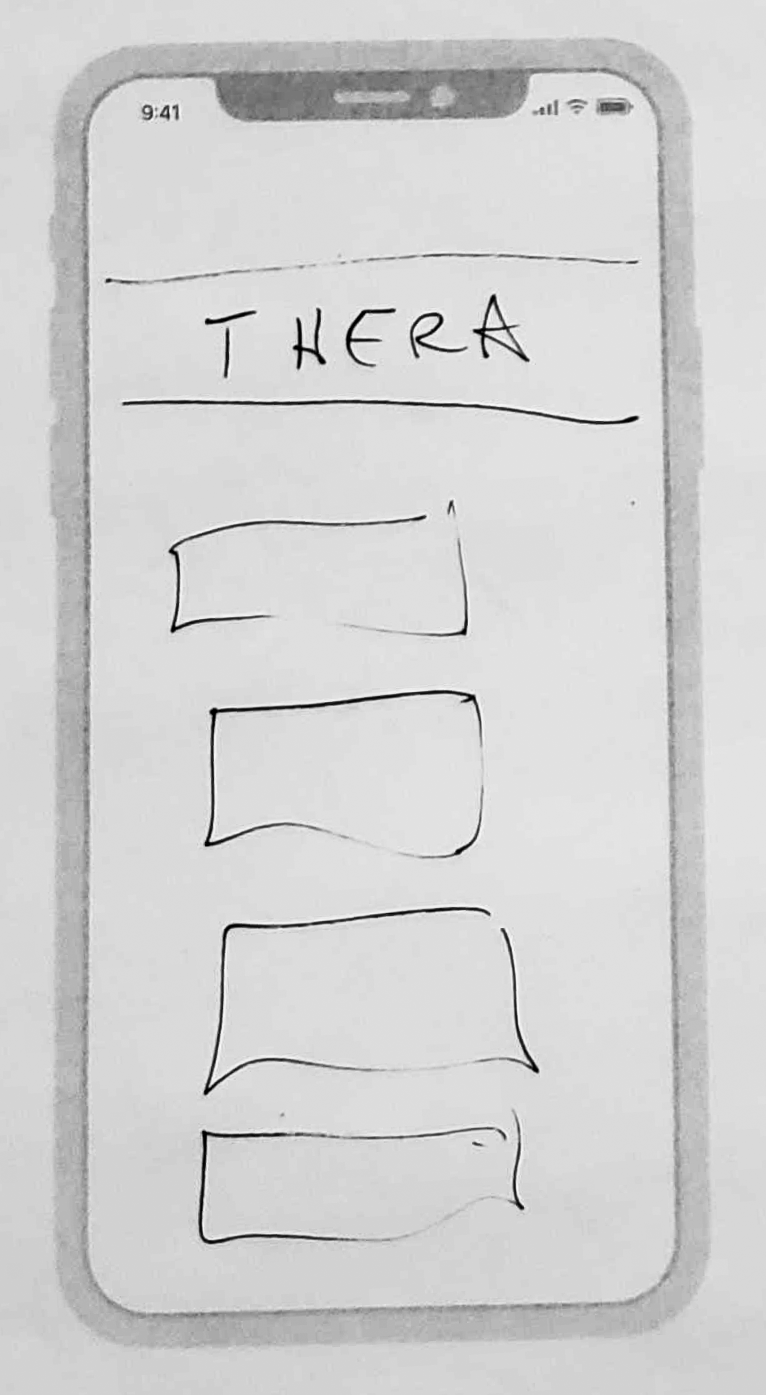 9:41
THERA